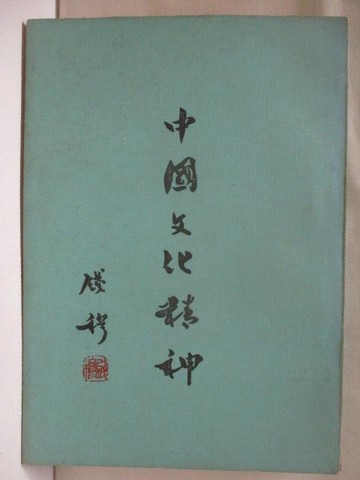 中國文化精神
錢穆